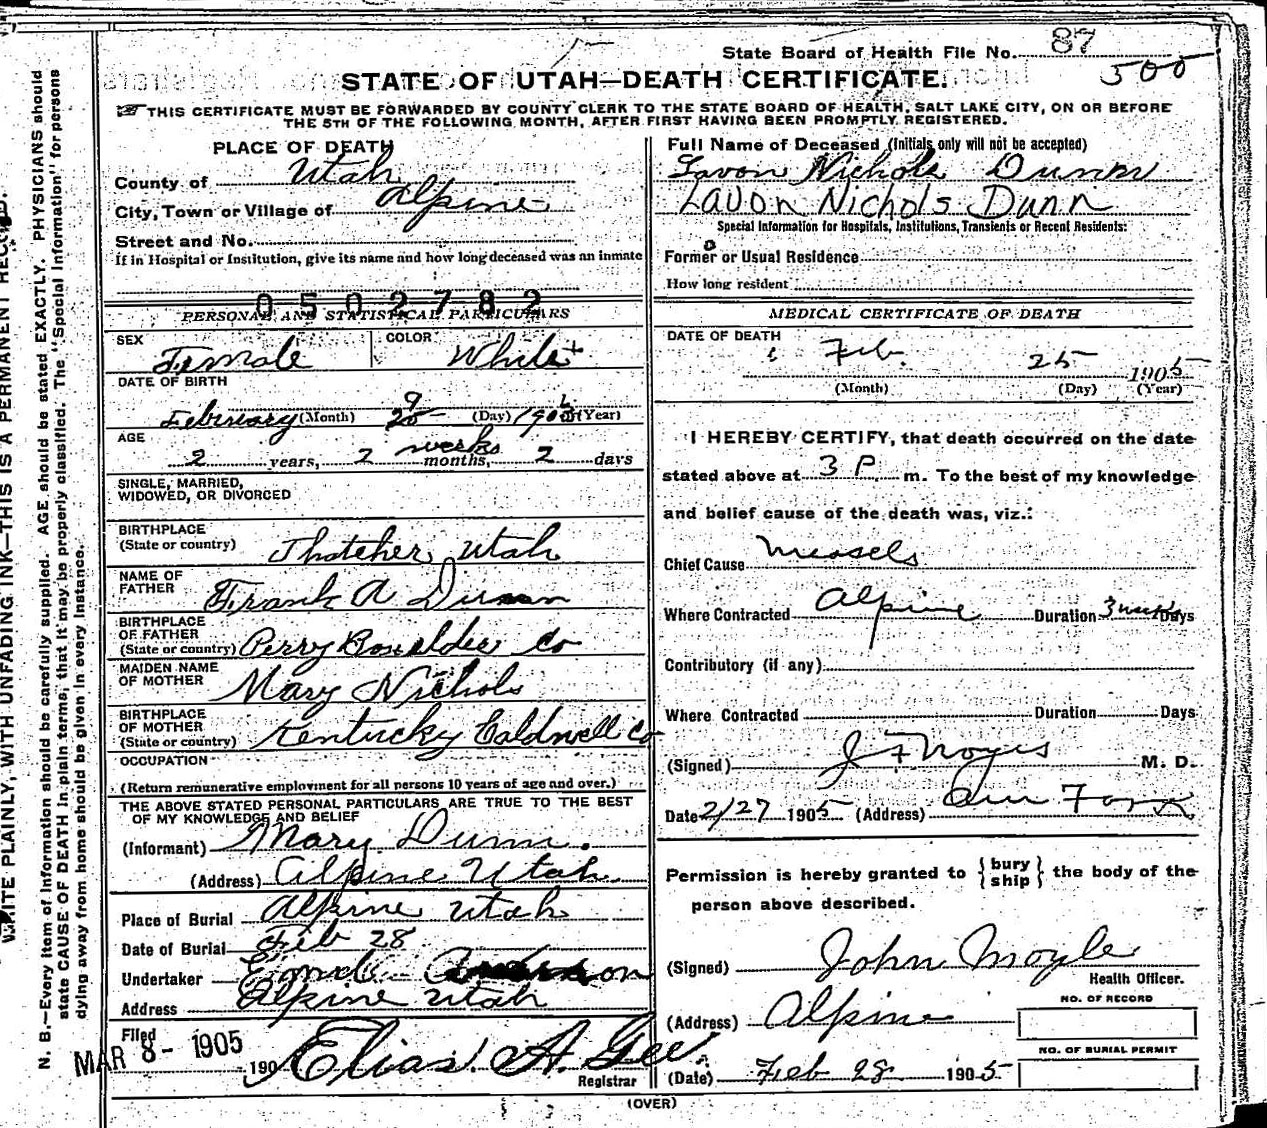 State Board of Health File No. 87
500
STATE OF UTAH—DEATH CERTIFICATE.
THIS CERTIFICATE MUST BE FORWARDED BY COUNTY CLERK TO THE STATE BOARD OF HEALTH, SALT LAKE CITY, ON OR BEFORE
THE 5TH OF THE FOLLOWING MONTH, AFTER FIRST HAVING BEEN PROMPTLY REGISTERED.
WRITE PLAINLY, WITH UNFADING INK—THIS IS A PERMANENT RECORD.
N. B.—Every item of information should be carefully supplied. AGE should be stated EXACTLY. PHYSICIANS should
state CAUSE OF DEATH in plain terms, that it may be properly classified. The "Special Information" for persons
dying away from home should be given in every instance.
PLACE OF DEATH
County of Utah
City, Town or Village of Alpine
Street and No.
If in Hospital or Institution, give its name and how long deceased was an inmate
0502782
PERSONAL AND STATISTICAL PARTICULARS
SEX Female COLOR White
DATE OF BIRTH
February (Month) 9 (Day) 190 (Year)
AGE
2 years, 2 weeks months, 2 days
SINGLE, MARRIED,
WIDOWED, OR DIVORCED
BIRTHPLACE
(State or country) Thatcher Utah
NAME OF
FATHER Frank A Dunn
BIRTHPLACE
OF FATHER
(State or country) Perry Co
MAIDEN NAME
OF MOTHER Mary Nichols
BIRTHPLACE
OF MOTHER
(State or country) Kentucky Caldwell Co
OCCUPATION
(Return remunerative employment for all persons 10 years of age and over.)
THE ABOVE STATED PERSONAL PARTICULARS ARE TRUE TO THE BEST
OF MY KNOWLEDGE AND BELIEF
(Informant) Mary Dunn.
(Address) Alpine Utah
Place of Burial Alpine Utah
Date of Burial Feb 28
Undertaker
Address Alpine Utah
Filed
MAR 8 - 1905 190 Elias. A. Gee.
Registrar
Full Name of Deceased (Initials only will not be accepted)
Lavon Nichols Dunn
LaVon Nichols Dunn
Special Information for Hospitals, Institutions, Transients or Recent Residents:
Former or Usual Residence
How long resident
MEDICAL CERTIFICATE OF DEATH
DATE OF DEATH
Feb. 25 1905
(Month) (Day) (Year)
I HEREBY CERTIFY, that death occurred on the date
stated above at 3 P. m. To the best of my knowledge
and belief cause of the death was, viz.:
Chief Cause Measels
Where Contracted Alpine Duration 3 weeks Days
Contributory (if any)
Where Contracted Duration Days
(Signed) J F Noyes M. D.
Date 2/27 1905 (Address) Am Fork
Permission is hereby granted to { bury ship } the body of the
person above described.
(Signed) John Moyle
Health Officer.
(Address) Alpine
NO. OF RECORD
NO. OF BURIAL PERMIT
(Date) Feb 28 1905
(OVER)